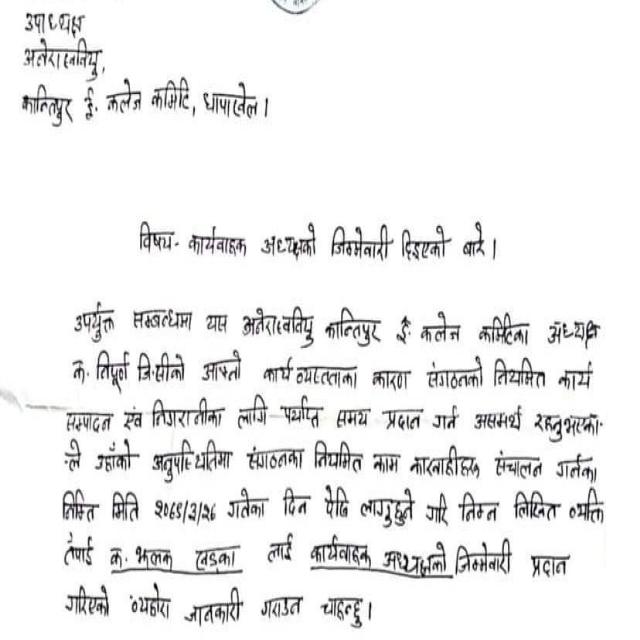 उपाध्यक्ष
अनेरास्ववियु,
कान्तिपुर ई. कलेज कमिटि, धापाखेल।
विषय- कार्यवाहक अध्यक्षको जिम्मेवारी दिइएको बारे।
उपर्युक्त सम्बन्धमा यस अनेरास्ववियु कान्तिपुर ई. कलेज कमिटिका अध्यक्ष
क. निपूर्ण जि.सीको आफ्नो कार्य व्यस्तताका कारण संगठनको नियमित कार्य
सम्पादन एवं निगरानीका लागि पर्याप्त समय प्रदान गर्न असमर्थ रहनुभएका-
-ले उहाँको अनुपस्थितिमा संगठनका नियमित काम कारवाहीहरु संचालन गर्नका
निम्ति मिति २०६८/३/२६ गतेका दिन देखि लागुहुने गरि निम्न लिखित व्यक्ति
तपाई क. झलक खड्का लाई कार्यवाहक अध्यक्षको जिम्मेवारी प्रदान
गरिएको व्यहोरा जानकारी गराउन चाहन्छु।